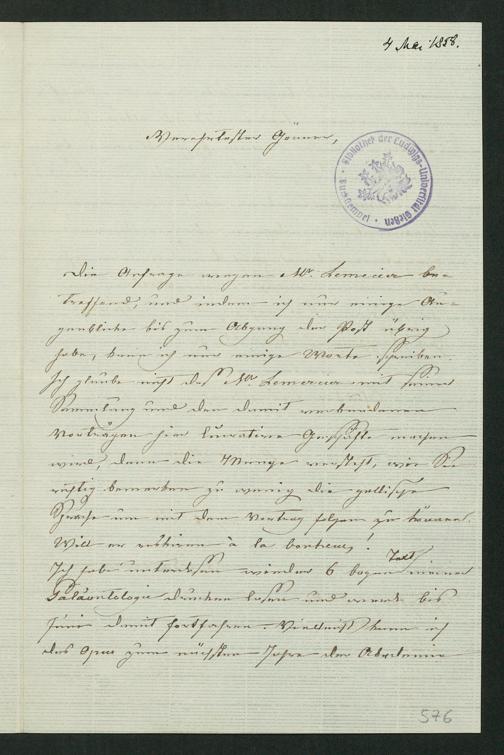 4 Mai 1858.
Verehrtester Gönner,
Bibliothek der Ludwigs-Universität Gießen
Die Anfrage wegen Mr. Lemercier be-
treffend, und indem ich nur einige Au-
genblicke bis zum Abgang der Post übrig
habe, kann ich nur wenige Worte schreiben.
Ich glaube nicht daß Mr. Lemercier mit seiner
Sammlung und den damit verbundenen
Vorträgen hier lucrative Geschäfte machen
wird, denn die Menge versteht, wie Sie
richtig bemerken zu wenig die gallische
Sprache um mit dem Vortrag folgen zu können.
Will er riskiren à la bonheur!
Ich habe unterdessen wieder 6 bogen Text meiner
Paläontologie drucken lassen und werde bis
Juni damit fortfahren. Vielleicht kann ich
das Opus zum nächsten Jahre der Akademie
576